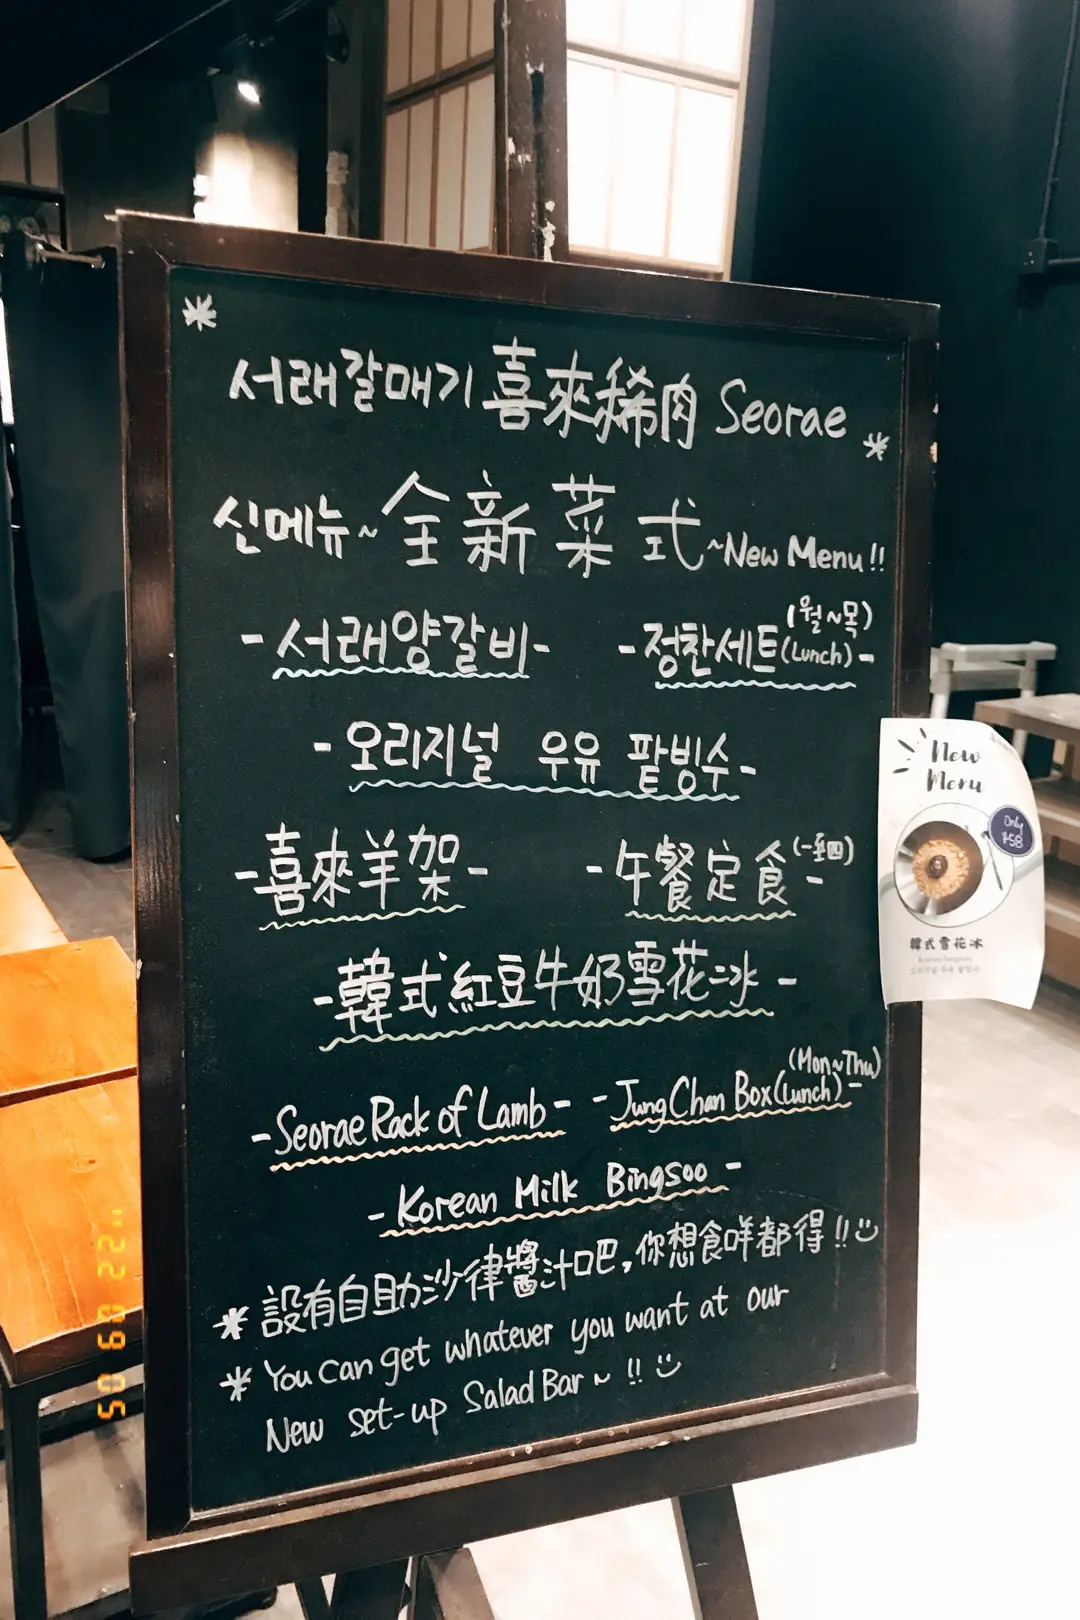 서래갈매기 喜來稀肉 Seorae
신메뉴~全新菜式~New Menu!!
-서래양갈비- -정찬세트(Lunch)-
(월~목)
-오리지널 우유 팥빙수-
-喜來羊架- -午餐定食(一至四)-
-韓式紅豆牛奶雪花冰-
-Seorae Rack of Lamb- -Jung Chan Box(Lunch)-
(Mon~Thu)
-Korean Milk Bingsoo-
* 設有自助沙律醬汁吧,你想食咩都得!!
* You can get whatever you want at our
New set-up Salad Bar~!!
New
Menu
Only
韓式雪花冰
Korean bingsoo
오리지널 우유 팥빙수
'' 22 09 05